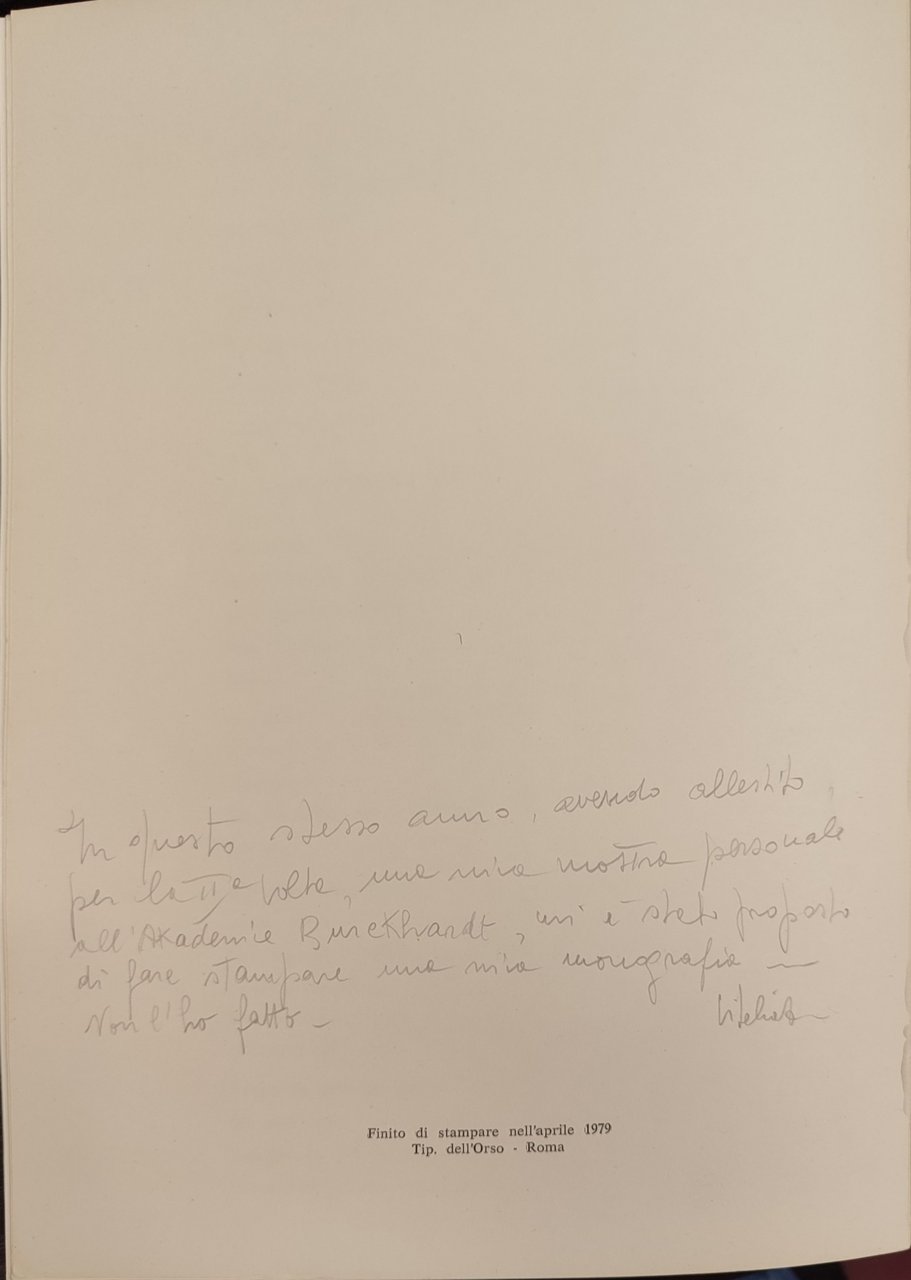 In questo stesso anno, avendo allestito,
per la IIª volta, una mia mostra personale
all'Akademie Burckhardt, mi è stato proposto
di fare stampare una mia monografia —
Non l'ho fatto —
Finito di stampare nell'aprile 1979
Tip. dell'Orso - Roma